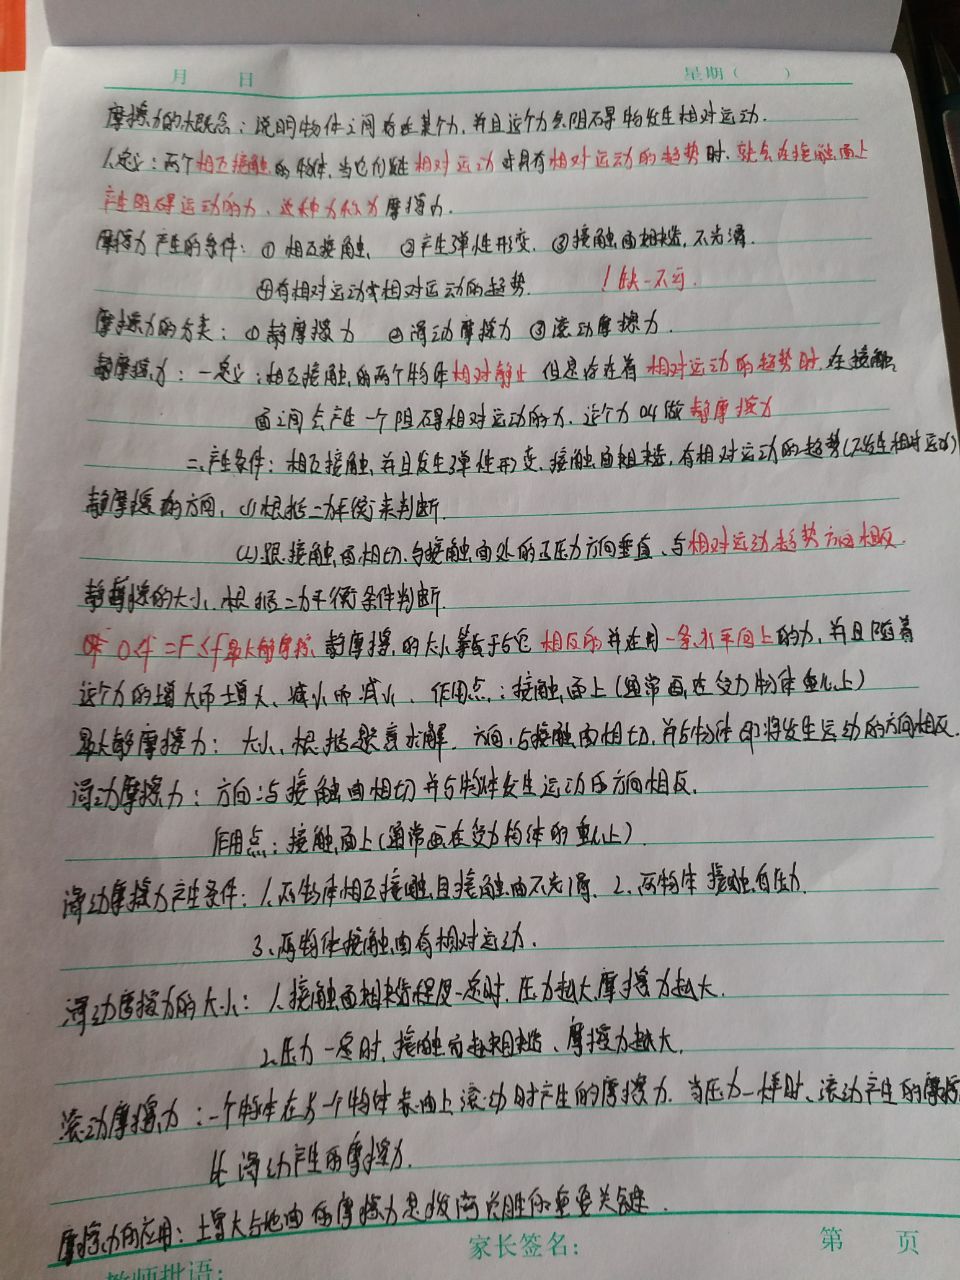 月 日 星期( )
摩擦力的大概念：说明物体之间存在某个力，并且这个力会阻碍物发生相对运动.
1.定义：两个相互接触的物体，当它们发生相对运动或具有相对运动的趋势时，就会在接触面上
产生阻碍运动的力、这种力称为摩擦力.
摩擦力产生的条件：① 相互接触、 ②产生弹性形变. ③接触面粗糙，不光滑.
④有相对运动或相对运动的趋势. ! 缺一不可.
摩擦力的分类：① 静摩擦力 ② 滑动摩擦力 ③ 滚动摩擦力.
静摩擦力：一定义：相互接触的两个物体相对静止 但是存在着 相对运动的趋势时，在接触
面之间会产生一个阻碍相对运动的力，这个力叫做 静摩擦力
二、产生条件：相互接触，并且发生弹性形变、接触面粗糙，有相对运动的趋势(不发生相对运动)
静摩擦的方向，(1)根据二力平衡来判断.
(2)跟接触面相切、与接触面处的正压力方向垂直、与相对运动趋势方向相反.
静摩擦的大小、根据二力平衡条件判断.
0<f=F≤f最大静摩擦、静摩擦的大小等于与它相反的并在同一条水平向上的力，并且随着
这个力的增大而增大、减小而减小、 作用点：接触面上(通常画在受力物体重心上)
最大静摩擦力： 大小、根据题意求解. 方向，与接触面相切，并与物体即将发生运动的方向相反.
滑动摩擦力：方向：与接触面相切并与物体发生运动的方向相反.
作用点：接触面上(通常画在受力物体的重心上)
滑动摩擦力产生条件：1.两物体相互接触且接触面不光滑、2、两物体接触有压力.
3、两物体接触面有相对运动.
滑动摩擦力的大小：1.接触面粗糙程度一定时，压力越大，摩擦力越大.
2.压力一定时，接触面越粗糙、摩擦力越大.
滚动摩擦力：一个物体在另一个物体表面上滚动时产生的摩擦力. 当压力一样时、滚动产生的摩擦
比滑动产生的摩擦力.
摩擦力的应用：1.增大与地面的摩擦力是拔河比胜的重要关键.
教师批语: 家长签名: 第 页